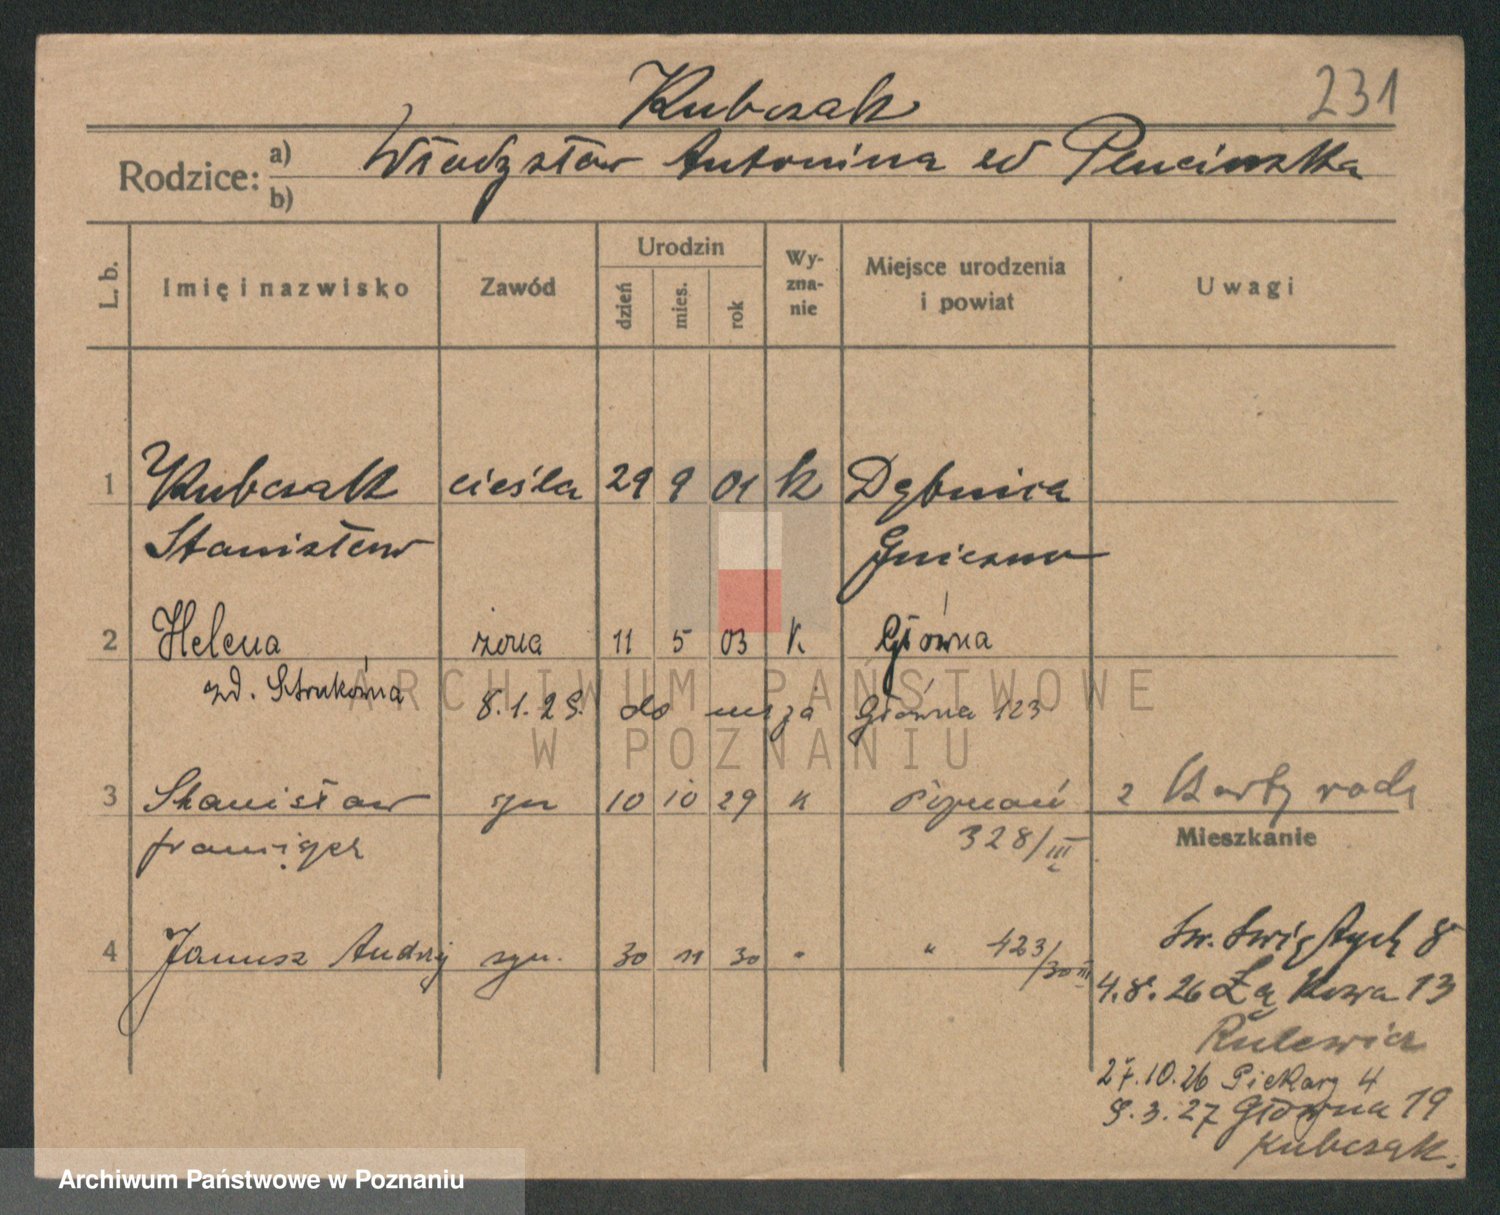 Kubczak 231
Rodzice: a) Władysław Antonina zd Plucińska
b)
L. b. Imię i nazwisko Zawód Urodzin dzień mies. rok Wy-zna-nie Miejsce urodzenia i powiat Uwagi
1 Kubczak cieśla 29 9 01 k Dębnica
Stanisław Gniezno
2 Helena żona 11 5 03 k Główna
zd. Strukówna 8.1.29. do męża Główna 123
3 Stanisław syn 10 10 29 k Poznań 2 Karty rodz
Franciszek 328/III
Mieszkanie
4 Janusz Andrzej syn. 30 11 30 " " 423/30 III
Św. Świętych 8
4.8.26 Łąkowa 13
27.10.26 Piekary 4
9.3.27 Główna 19
Kubczak.
ARCHIWUM PAŃSTWOWE
W POZNANIU
Archiwum Państwowe w Poznaniu